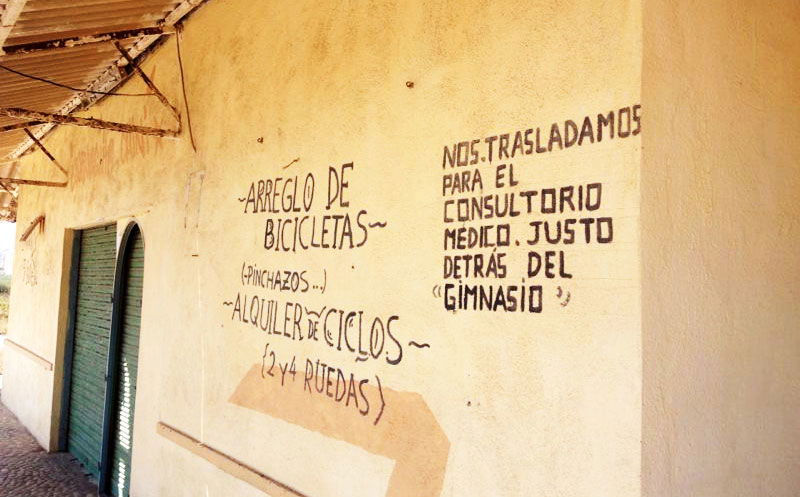 ~ARREGLO DE
BICICLETAS~
(-PINCHAZOS...)
~ALQUILER DE CICLOS~
{2 y 4 RUEDAS}
NOS.TRASLADAMOS
PARA EL
CONSULTORIO
MÉDICO. JUSTO
DETRÁS DEL
"GIMNASIO"